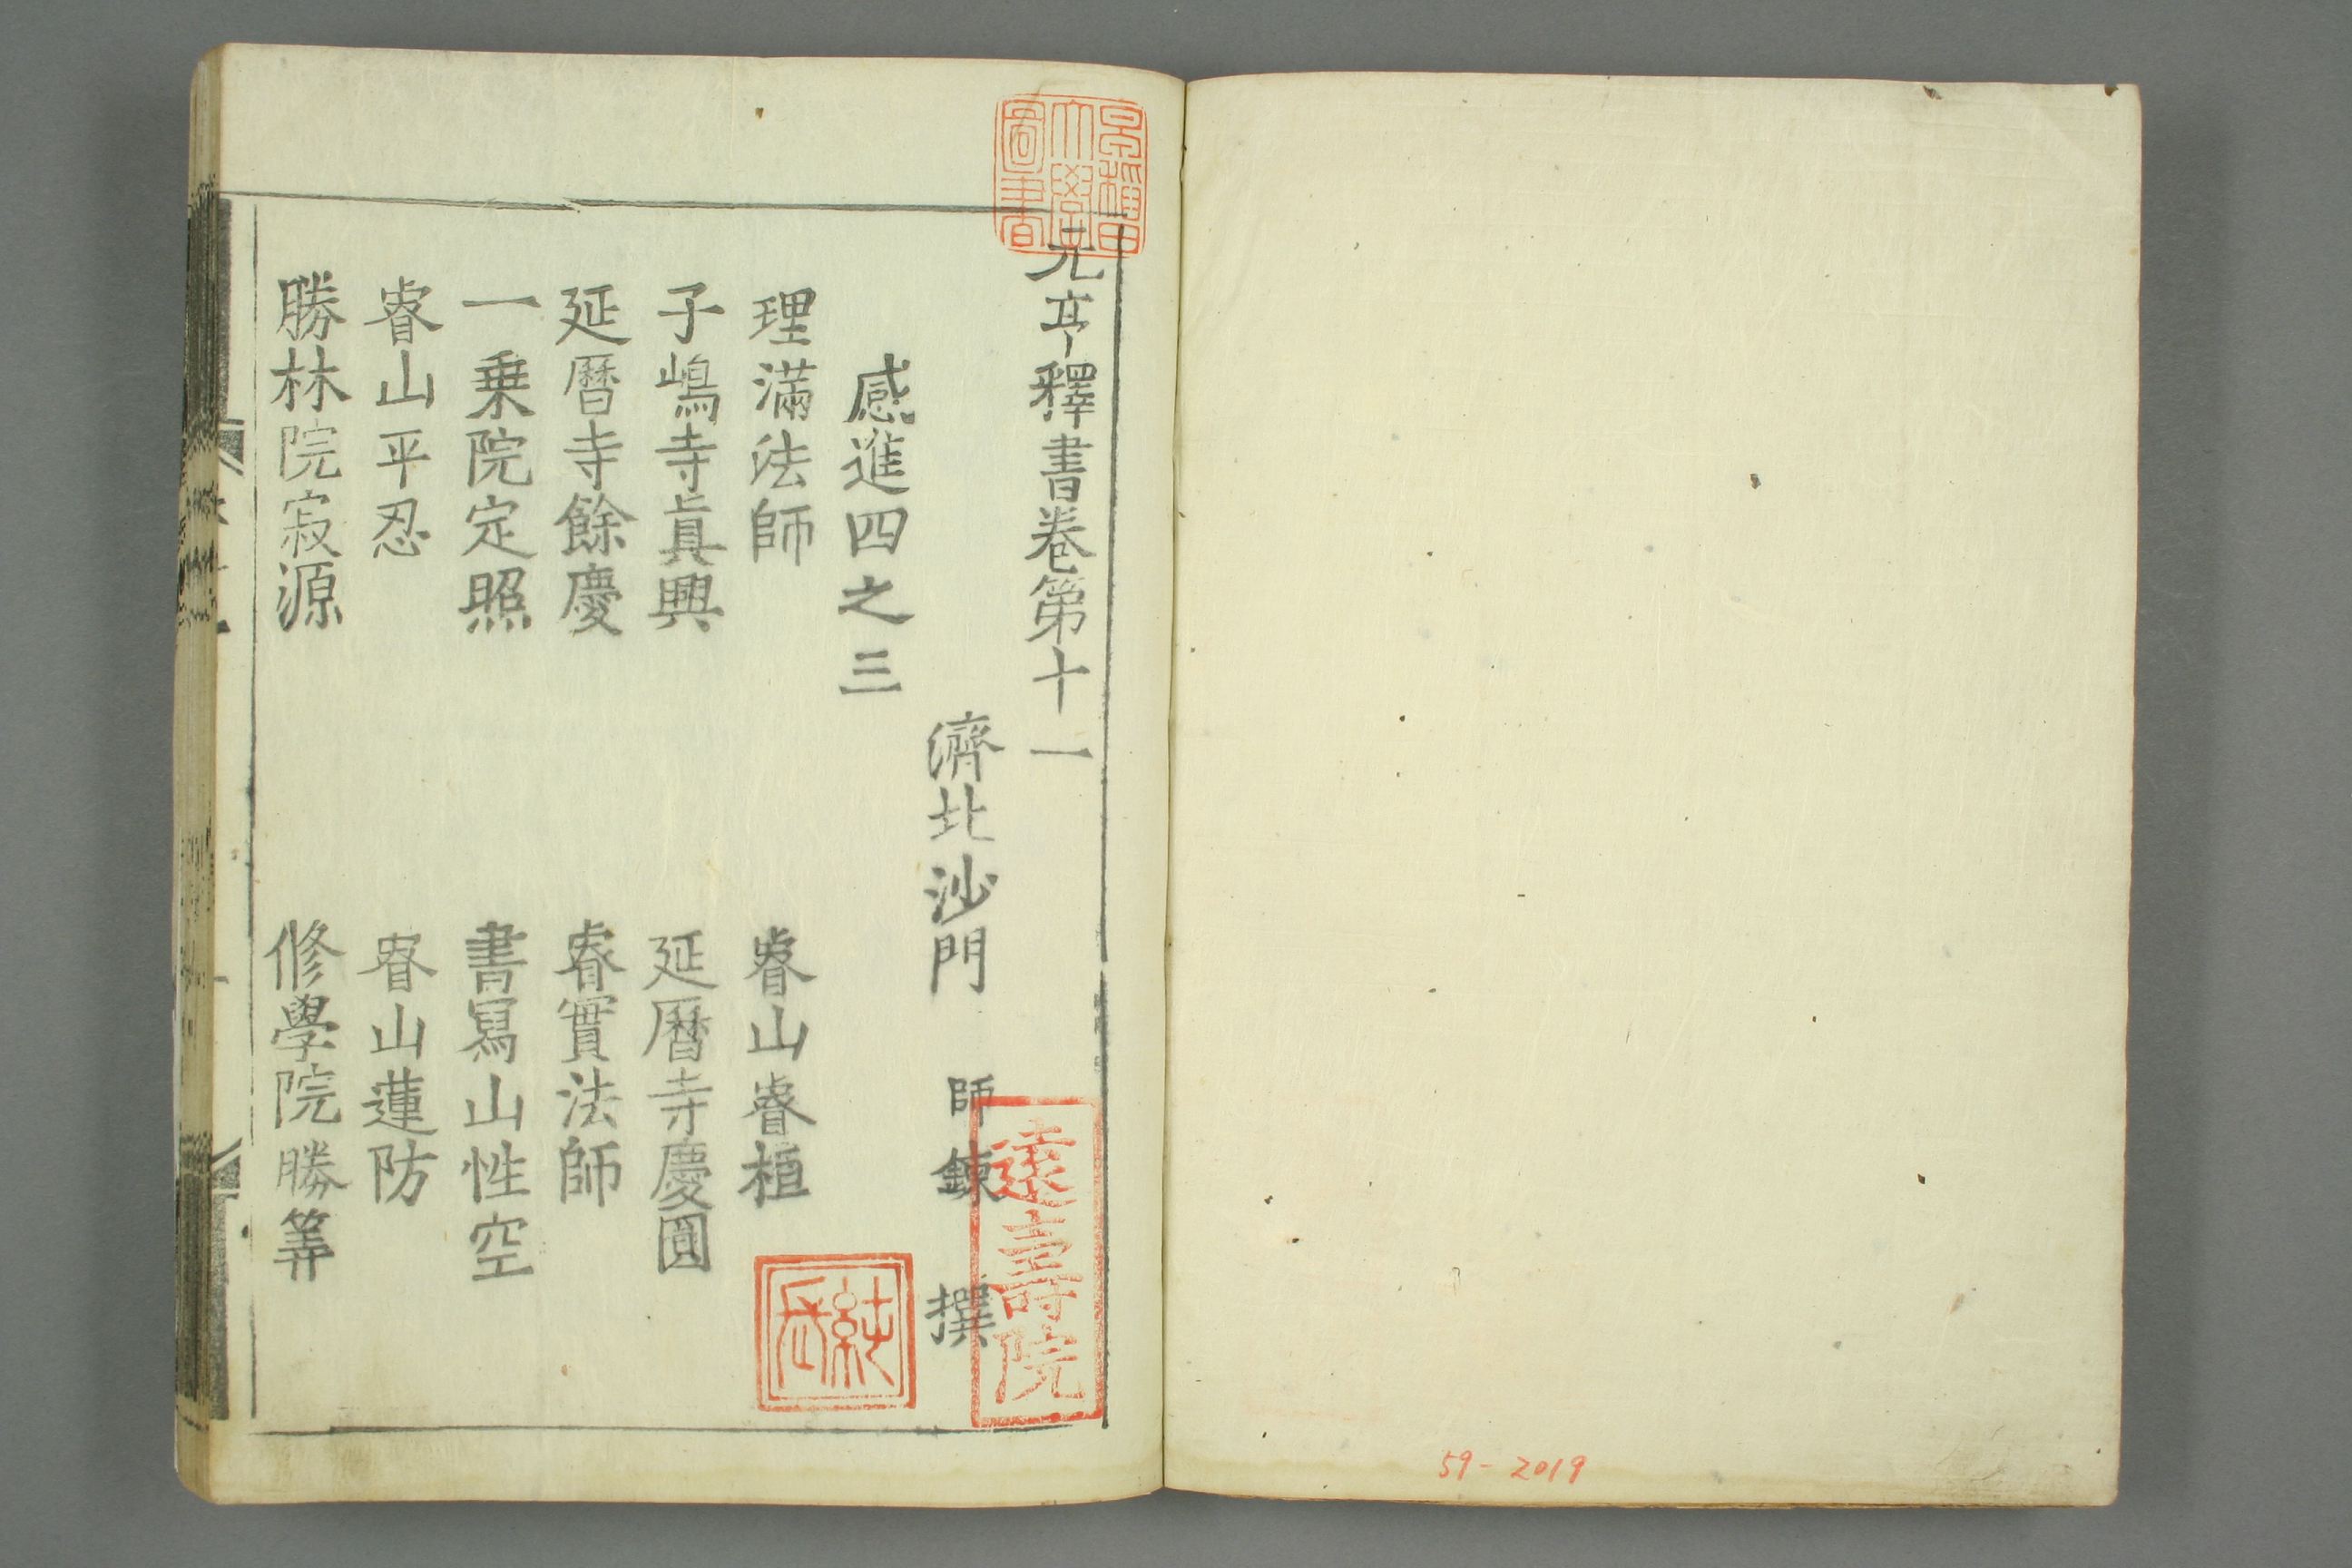 元亨釋書卷第十一
濟北沙門 師鍊 撰
感進四之三
理滿法師 睿山睿桓
子嶋寺眞興 延曆寺慶圓
延曆寺餘慶 睿實法師
一乗院定照 書寫山性空
睿山平忍 睿山蓮防
勝林院寂源 修學院勝筭
早稲田大學圖書
遠壽院
59-2019